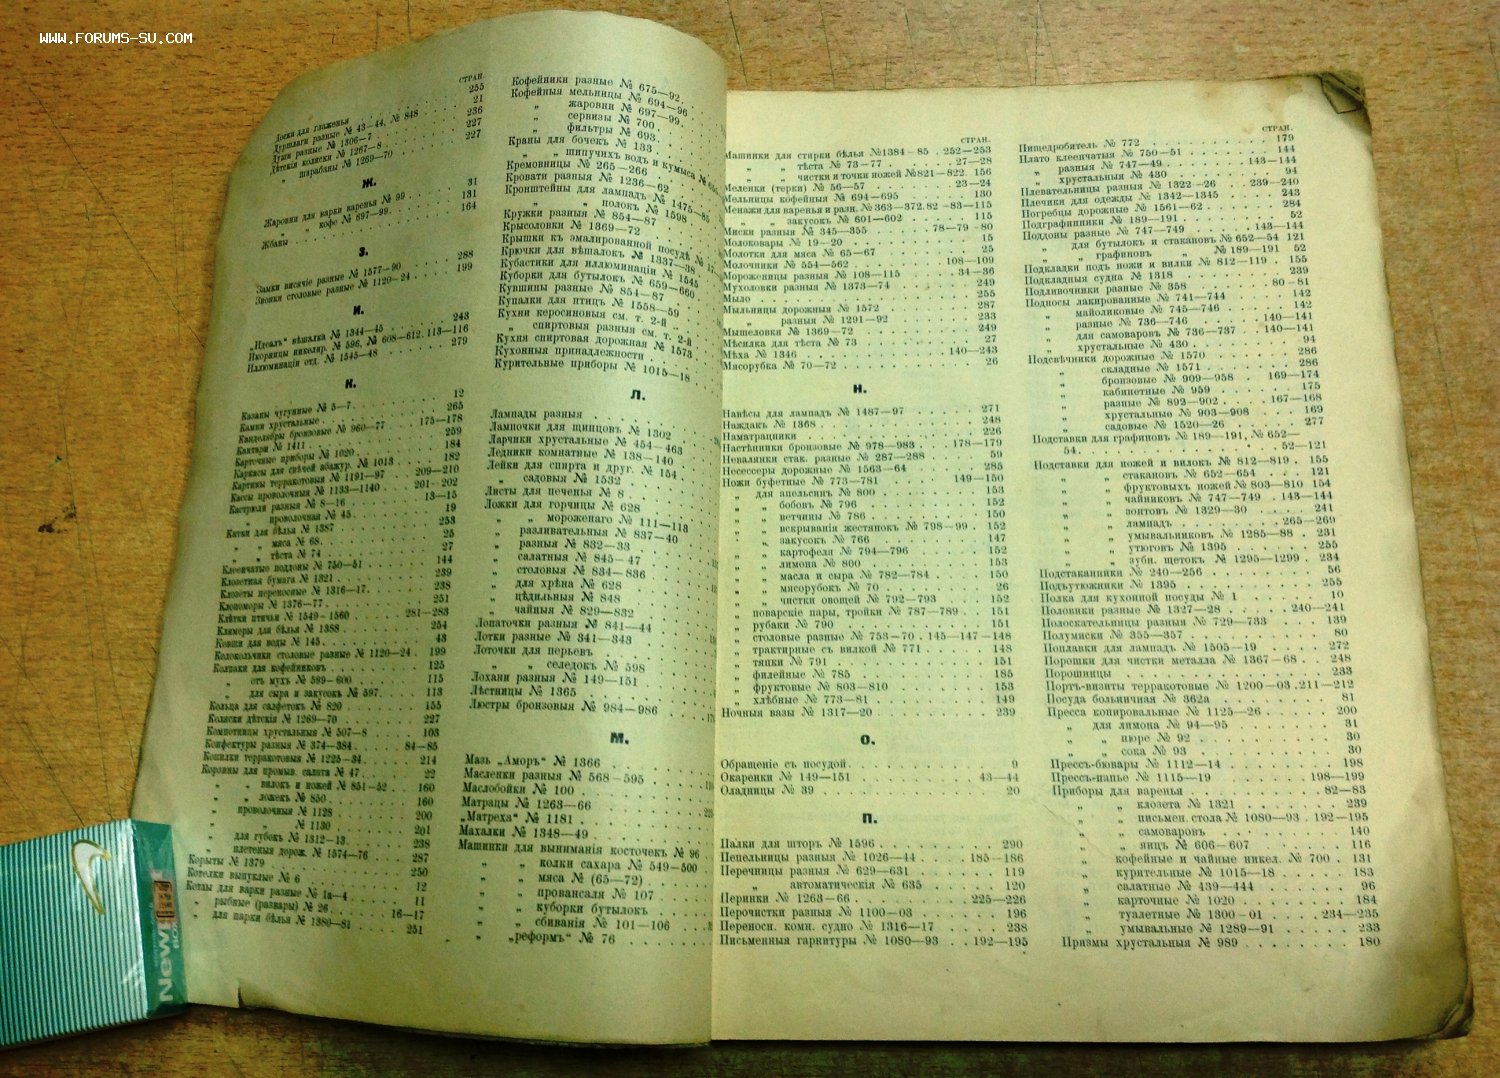 WWW.FORUMS-SU.COM
СТРАН.
Доски для глаженья . . . 255
Дуршлаги разные № 43—44, № 848 21
Души разные № 1306—7 . . . 236
Дѣтскія коляски № 1267—8 . . . 227
„ шарабаны № 1269—70 . . . 227
Ж.
Жаровни для варки варенья № 99 . 31
„ „ кофе № 697—99 . . 131
Жбаны . . . 164
З.
Замки висячіе разные № 1577—90 . . 288
Звонки столовые разные № 1120—24 . . 199
И.
„Идеалъ“ вѣшалка № 1344—45 . . . 243
Икорницы никелир. № 596, № 608—612. 113—116
Иллюминаціи отд. № 1545—48 . . . 279
К.
Казаны чугунные № 5—7 . . . 12
Камни хрустальные . . . 265
Канделябры бронзовые № 960—77 . . 175—178
Кантари № 1411 . . . 259
Карточные приборы № 1020 . . . 184
Каркасы для свѣчей абажур. № 1013 . . 182
Картины терракотовыя № 1191—97 . . 209—210
Кассы проволочныя № 1133—1140 . . 201—202
Кастрюли разныя № 8—16 . . . 13—15
„ проволочная № 45 . . . 19
Катки для бѣлья № 1387 . . . 253
„ „ мяса № 68 . . . 25
„ „ тѣста № 74 . . . 27
Клеенчатые поддоны № 750—51 . . . 144
Клозетная бумага № 1321 . . . 239
Клозеты переносные № 1316—17 . . . 238
Клопоморы № 1376—77 . . . 251
Клѣтки птичьи № 1549—1560 . . . 281—283
Клямеры для бѣлья № 1388 . . . 254
Ковши для воды № 145 . . . 43
Колокольчики столовые разные № 1120—24 . 199
Колпаки для кофейниковъ . . . 125
„ отъ мухъ № 599—600 . . . 115
„ для сыра и закусокъ № 597 . . . 113
Кольца для салфетокъ № 820 . . . 155
Коляски дѣтскія № 1269—70 . . . 227
Компотницы хрустальныя № 507—8 . . 103
Конфектуры разныя № 374—384 . . . 84—85
Копилки терракотовыя № 1225—34 . . . 214
Корзины для промыв. салата № 47 . . . 22
„ „ вилокъ и ножей № 851—52 . . 160
„ „ ложекъ № 850 . . . 160
„ проволочныя № 1128 . . . 200
„ „ № 1130 . . . 201
„ для губокъ № 1312—13 . . . 238
„ плетеныя дорож. № 1574—76 . . . 287
Корыты № 1379 . . . 250
Котелки выпуклые № 6 . . . 12
Котлы для варки разные № 1а—4 . . . 11
„ рыбные (развары) № 26 . . . 16—17
„ для парки бѣлья № 1380—81 . . . 251
Кофейники разные № 675—92.
Кофейныя мельницы № 694—96
„ жаровни № 697—99.
„ сервизы № 700
„ фильтры № 693
Краны для бочекъ № 133
„ „ шипучихъ водъ и кумыса №
Кремовницы № 265—266
Кровати разныя № 1236—62
Кронштейны для лампадъ № 1475—85
„ „ полокъ № 1598
Кружки разныя № 854—87
Крысоловки № 1369—72
Крышки къ эмалированной посудѣ №
Крючки для вѣшалокъ № 1337—38
Кубастики для иллюминаціи № 1545
Куборки для бутылокъ № 659—660
Кувшины разные № 854—87
Купалки для птицъ № 1558—59
Кухни керосиновыя см. т. 2-й
„ спиртовыя разныя см. т. 2-й
Кухня спиртовая дорожная № 1573
Кухонныя принадлежности
Курительные приборы № 1015—18
Л.
Лампады разныя
Лампочки для щипцовъ № 1302
Ларчики хрустальные № 454—463
Ледники комнатные № 138—140
Лейки для спирта и друг. № 154
„ садовыя № 1532
Листы для печенья № 8
Ложки для горчицы № 628
„ „ мороженаго № 111—113
„ разливательныя № 837—40
„ разныя № 832—33
„ салатныя № 845—47
„ столовыя № 834—836
„ для хрѣна № 628
„ цѣдильныя № 848
„ чайныя № 829—832
Лопаточки разныя № 841—44
Лотки разные № 341—343
Лоточки для перьевъ
„ „ селедокъ № 598
Лохани разныя № 149—151
Лѣстницы № 1365
Люстры бронзовыя № 984—986
М.
Мазь „Аморъ“ № 1366
Масленки разныя № 568—595
Маслобойки № 100
Матрацы № 1263—66
„Матреха“ № 1181
Махалки № 1348—49
Машинки для выниманія косточекъ № 96
„ „ колки сахара № 549—500
„ „ мяса № (65—72)
„ „ провансаля № 107
„ „ куборки бутылокъ
„ „ сбиванія № 101—106
„ „реформъ“ № 76
СТРАН.
Машинки для стирки бѣлья №1384—85 . 252—253
„ „ тѣста № 73—77 . . . 27—28
„ „ чистки и точки ножей№821—822. 156
Меленки (терки) № 56—57 . . . 23—24
Мельницы кофейныя № 694—695 . . . 130
Менажи для варенья и разн. №363—372.82—83—115
„ „ закусокъ № 601—602 . . . 115
Миски разныя № 345—355 . . . 78—79—80
Молоковары № 19—20 . . . 15
Молотки для мяса № 65—67 . . . 25
Молочники № 554—562 . . . 108—109
Мороженицы разныя № 108—115 . . . 34—36
Мухоловки разныя № 1373—74 . . . 249
Мыло . . . 255
Мыльницы дорожныя № 1572 . . . 287
„ разныя № 1291—92 . . . 233
Мышеловки № 1369—72 . . . 249
Мѣсилка для тѣста № 73 . . . 27
Мѣха № 1346 . . . 140—243
Мясорубка № 70—72 . . . 26
Н.
Навѣсы для лампадъ № 1487—97 . . . 271
Наждакъ № 1368 . . . 248
Наматрацники . . . 226
Настѣнники бронзовые № 978—983 . . . 178—179
Невалянки стак. разные № 287—288 . . . 59
Несессеры дорожные № 1563—64 . . . 285
Ножи буфетные № 773—781 . . . 149—150
„ для апельсинъ № 800 . . . 153
„ „ бобовъ № 796 . . . 152
„ „ ветчины № 786 . . . 150
„ „ вскрыванія жестянокъ № 798—99 . 152
„ „ закусокъ № 766 . . . 147
„ „ картофеля № 794—796 . . . 152
„ „ лимона № 800 . . . 153
„ „ масла и сыра № 782—784 . . . 150
„ „ мясорубокъ № 70 . . . 26
„ „ чистки овощей № 792—793 . . . 152
„ поварскіе пары, тройки № 787—789 . . 151
„ рубаки № 790 . . . 151
„ столовые разные № 753—70 . 145—147—148
„ трактирные съ вилкой № 771 . . . 148
„ тяпки № 791 . . . 151
„ филейные № 785 . . . 185
„ фруктовые № 803—810 . . . 153
„ хлѣбные № 773—81 . . . 149
Ночныя вазы № 1317—20 . . . 239
О.
Обращеніе съ посудой . . . 9
Окаренки № 149—151 . . . 43—44
Оладницы № 39 . . . 20
П.
Палки для шторъ № 1596 . . . 290
Пепельницы разныя № 1026—44 . . . 185—186
Перечницы разныя № 629—631 . . . 119
„ автоматическія № 635 . . . 120
Перинки № 1263—66 . . . 225—226
Перочистки разныя № 1100—03 . . . 196
Переносн. комн. судно № 1316—17 . . . 238
Письменныя гарнитуры № 1080—93 . . 192—195
СТРАН.
Пищедробитель № 772 . . . 179
Плато клеенчатыя № 750—51 . . . 144
„ разныя № 747—49 . . . 143—144
„ хрустальныя № 430 . . . 94
Плевательницы разныя № 1322—26 . . 239—240
Плечики для одежды № 1342—1345 . . . 243
Погребцы дорожные № 1561—62 . . . 284
Подграфинники № 189—191 . . . 52
Поддоны разные № 747—749 . . . 143—144
„ для бутылокъ и стакановъ № 652—54 121
„ „ графиновъ „ № 189—191 52
Подкладки подъ ножи и вилки № 812—119 . 155
Подкладныя судна № 1318 . . . 239
Подливочники разные № 358 . . . 80—81
Подносы лакированные № 741—744 . . . 142
„ майоликовые № 745—746 . . . 142
„ разные № 736—746 . . . 140—141
„ для самоваровъ № 736—737 . . 140—141
„ хрустальные № 430 . . . 94
Подсвѣчники дорожные № 1570 . . . 286
„ складные № 1571 . . . 286
„ бронзовые № 909—958 . 169—174
„ кабинетные № 959 . . . 175
„ разные № 892—902 . . . 167—168
„ хрустальные № 903—908 . . . 169
„ садовые № 1520—26 . . . 277
Подставки для графиновъ № 189—191, № 652—
54 . . . 52—121
Подставки для ножей и вилокъ № 812—819 . 155
„ „ стакановъ № 652—654 . . . 121
„ „ фруктовыхъ ножей№ 803—810 154
„ „ чайниковъ № 747—749 . 143—144
„ „ зонтовъ № 1329—30 . . . 241
„ „ лампадъ . . . 265—269
„ „ умывальниковъ № 1285—88 . 231
„ „ утюговъ № 1395 . . . 255
„ „ зубн. щетокъ № 1295—1299 . 234
Подстаканники № 240—256 . . . 56
Подъутюжники № 1395 . . . 255
Полка для кухонной посуды № 1 . . . 10
Половики разные № 1327—28 . . . 240—241
Полоскательницы разныя № 729—733 . . . 139
Полумиски № 355—357 . . . 80
Поплавки для лампадъ № 1505—19 . . . 272
Порошки для чистки металла № 1367—68 . . 248
Порошницы . . . 233
Портъ-визиты терракотовые № 1200—03 .211—212
Посуда больничная № 362а . . . 81
Пресса копировальные № 1125—26 . . . 200
„ для лимона № 94—95 . . . 31
„ „ пюре № 92 . . . 30
„ „ сока № 93 . . . 30
Прессъ-бювары № 1112—14 . . . 198
Прессъ-папье № 1115—19 . . . 198—199
Приборы для варенья . . . 82—83
„ „ клозета № 1321 . . . 239
„ „ письмен. стола № 1080—93 . 192—195
„ „ самоваровъ . . . 140
„ „ яицъ № 606—607 . . . 116
„ кофейные и чайные никел. № 700 . 131
„ курительные № 1015—18 . . . 183
„ салатные № 439—444 . . . 96
„ карточные № 1020 . . . 184
„ туалетные № 1300—01 . . . 234—235
„ умывальные № 1289—91 . . . 233
Призмы хрустальныя № 989 . . . 180
New